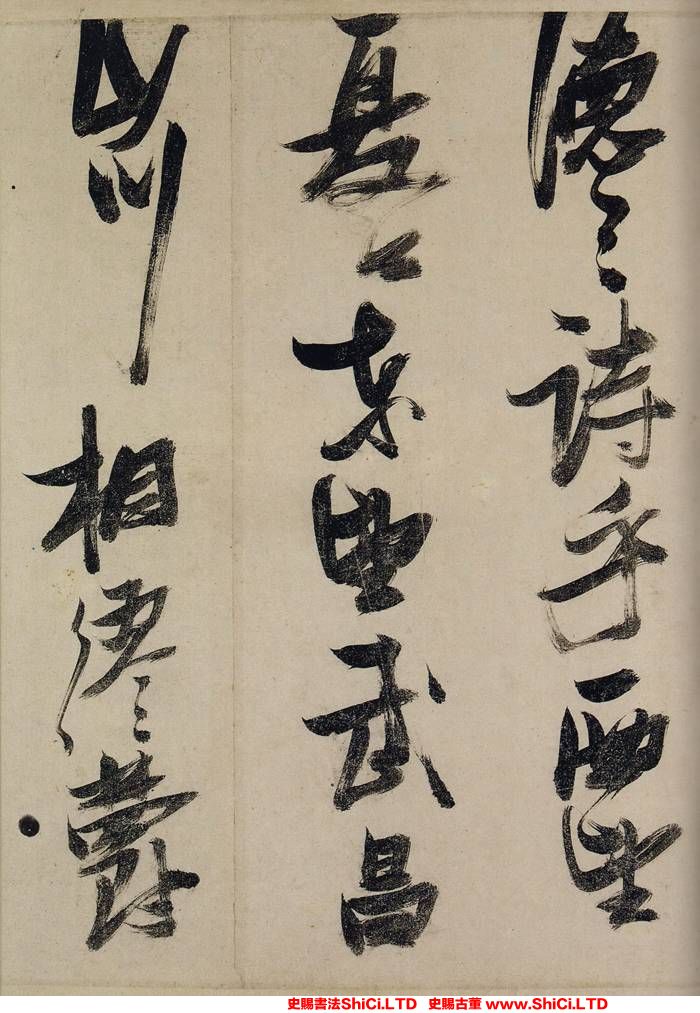 德之詩乎西望
夏口東望武昌
山川相繆鬱
史賜書法ShiCi.LTD 史賜古董 www.ShiCi.LTD